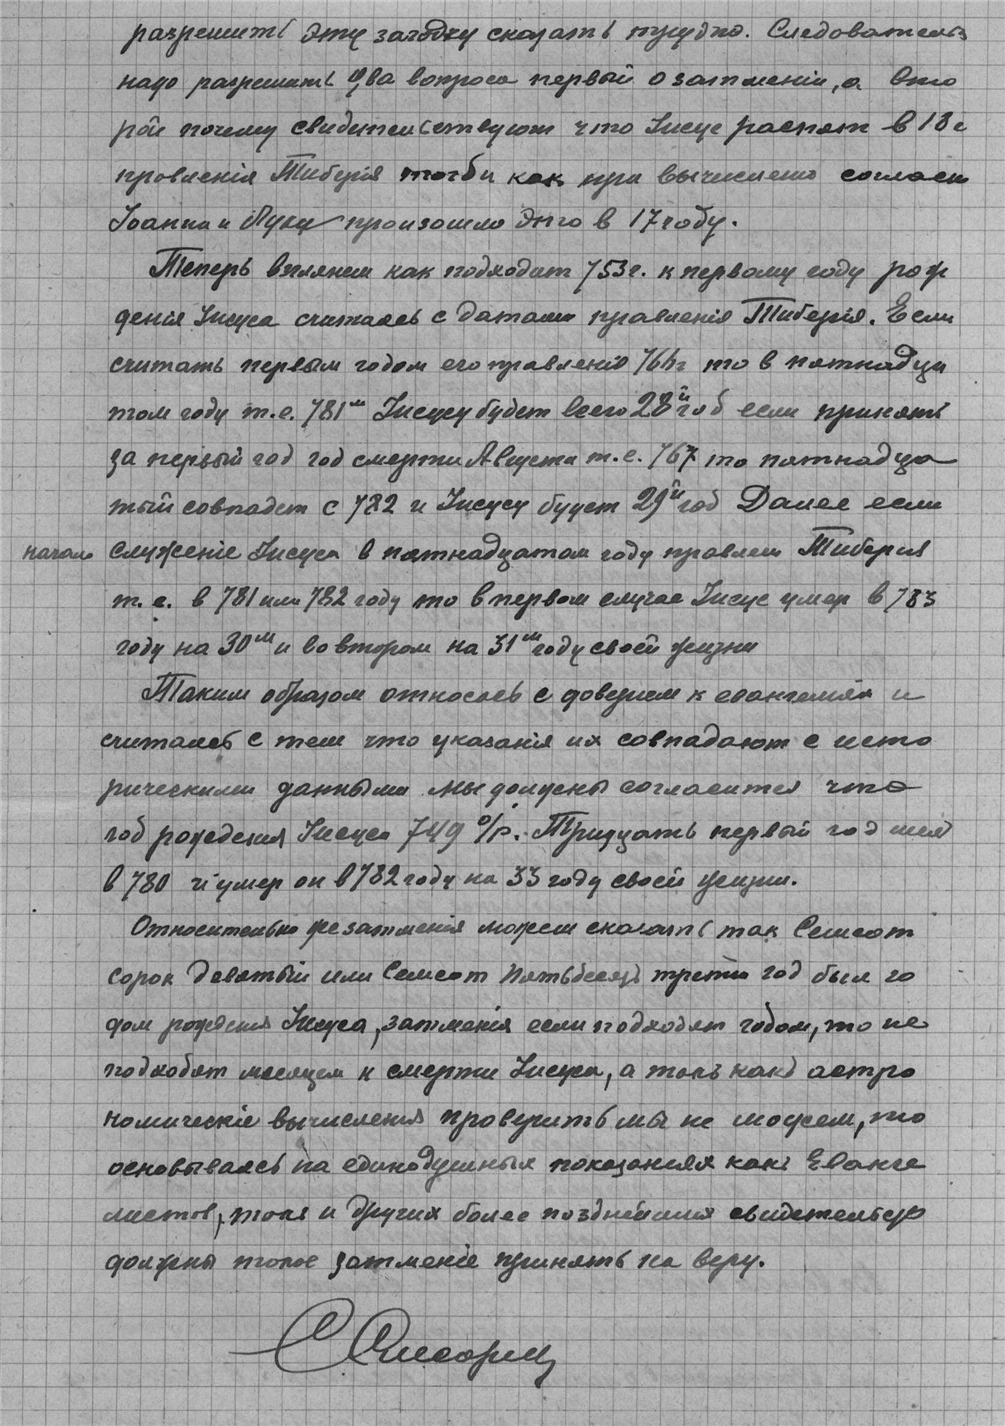 разрешить эту загодку сказать трудно. Следователь
надо разрешить два вопроса первый о затмении, а вто
рой почему свидительствуют что Iисус распят в 18 г
правленiя Тиберiя тогда как при вычислено согласн
Iоанна и Луки произошло это в 17 году.
Теперь взглянем как подходит 753 г. к первому году рож
денiя Iисуса считаясь с датами правленiя Тиберiя. Если
считать первым годом его правленiя 766 г то в пятнадца
том году т.е. 781м Iисусу будет всего 28й год если принять
за первый год год смерти Августа т.е. 767 то пятнадца
тый совпадет с 782 и Iисусу будет 29й год Далее если
начало служенiе Iисуса в пятнадцатом году правлен Тиберия
т.е. в 781 или 782 году то в первом случае Iисус умер в 783
году на 30м и во втором на 31м году своей жизни
Таким образом относясь с доверием к евангелiям и
считаясь с тем что указанiя их совпадают с исто
рическими данными мы должны согласится что
год рождения Iисуса 749 о/р. Тридцать первый год шел
в 780 и умер он в 782 году на 33 году своей жизни.
Относительно же затменiя можем сказать так Семсот
сорок девятый или Семсот пятьдесят третiй год был го
дом рождения Iисуса, затменiя если подходят годом, то не
подходят месяцем к смерти Iисуса, а такъ какъ астро
номическiе вычисления проверить мы не можем, то
основываясь на единодушных показаниях какъ Еванге
листов, так и других более позднейших свидетельств
должны такое затменiе принять на веру.